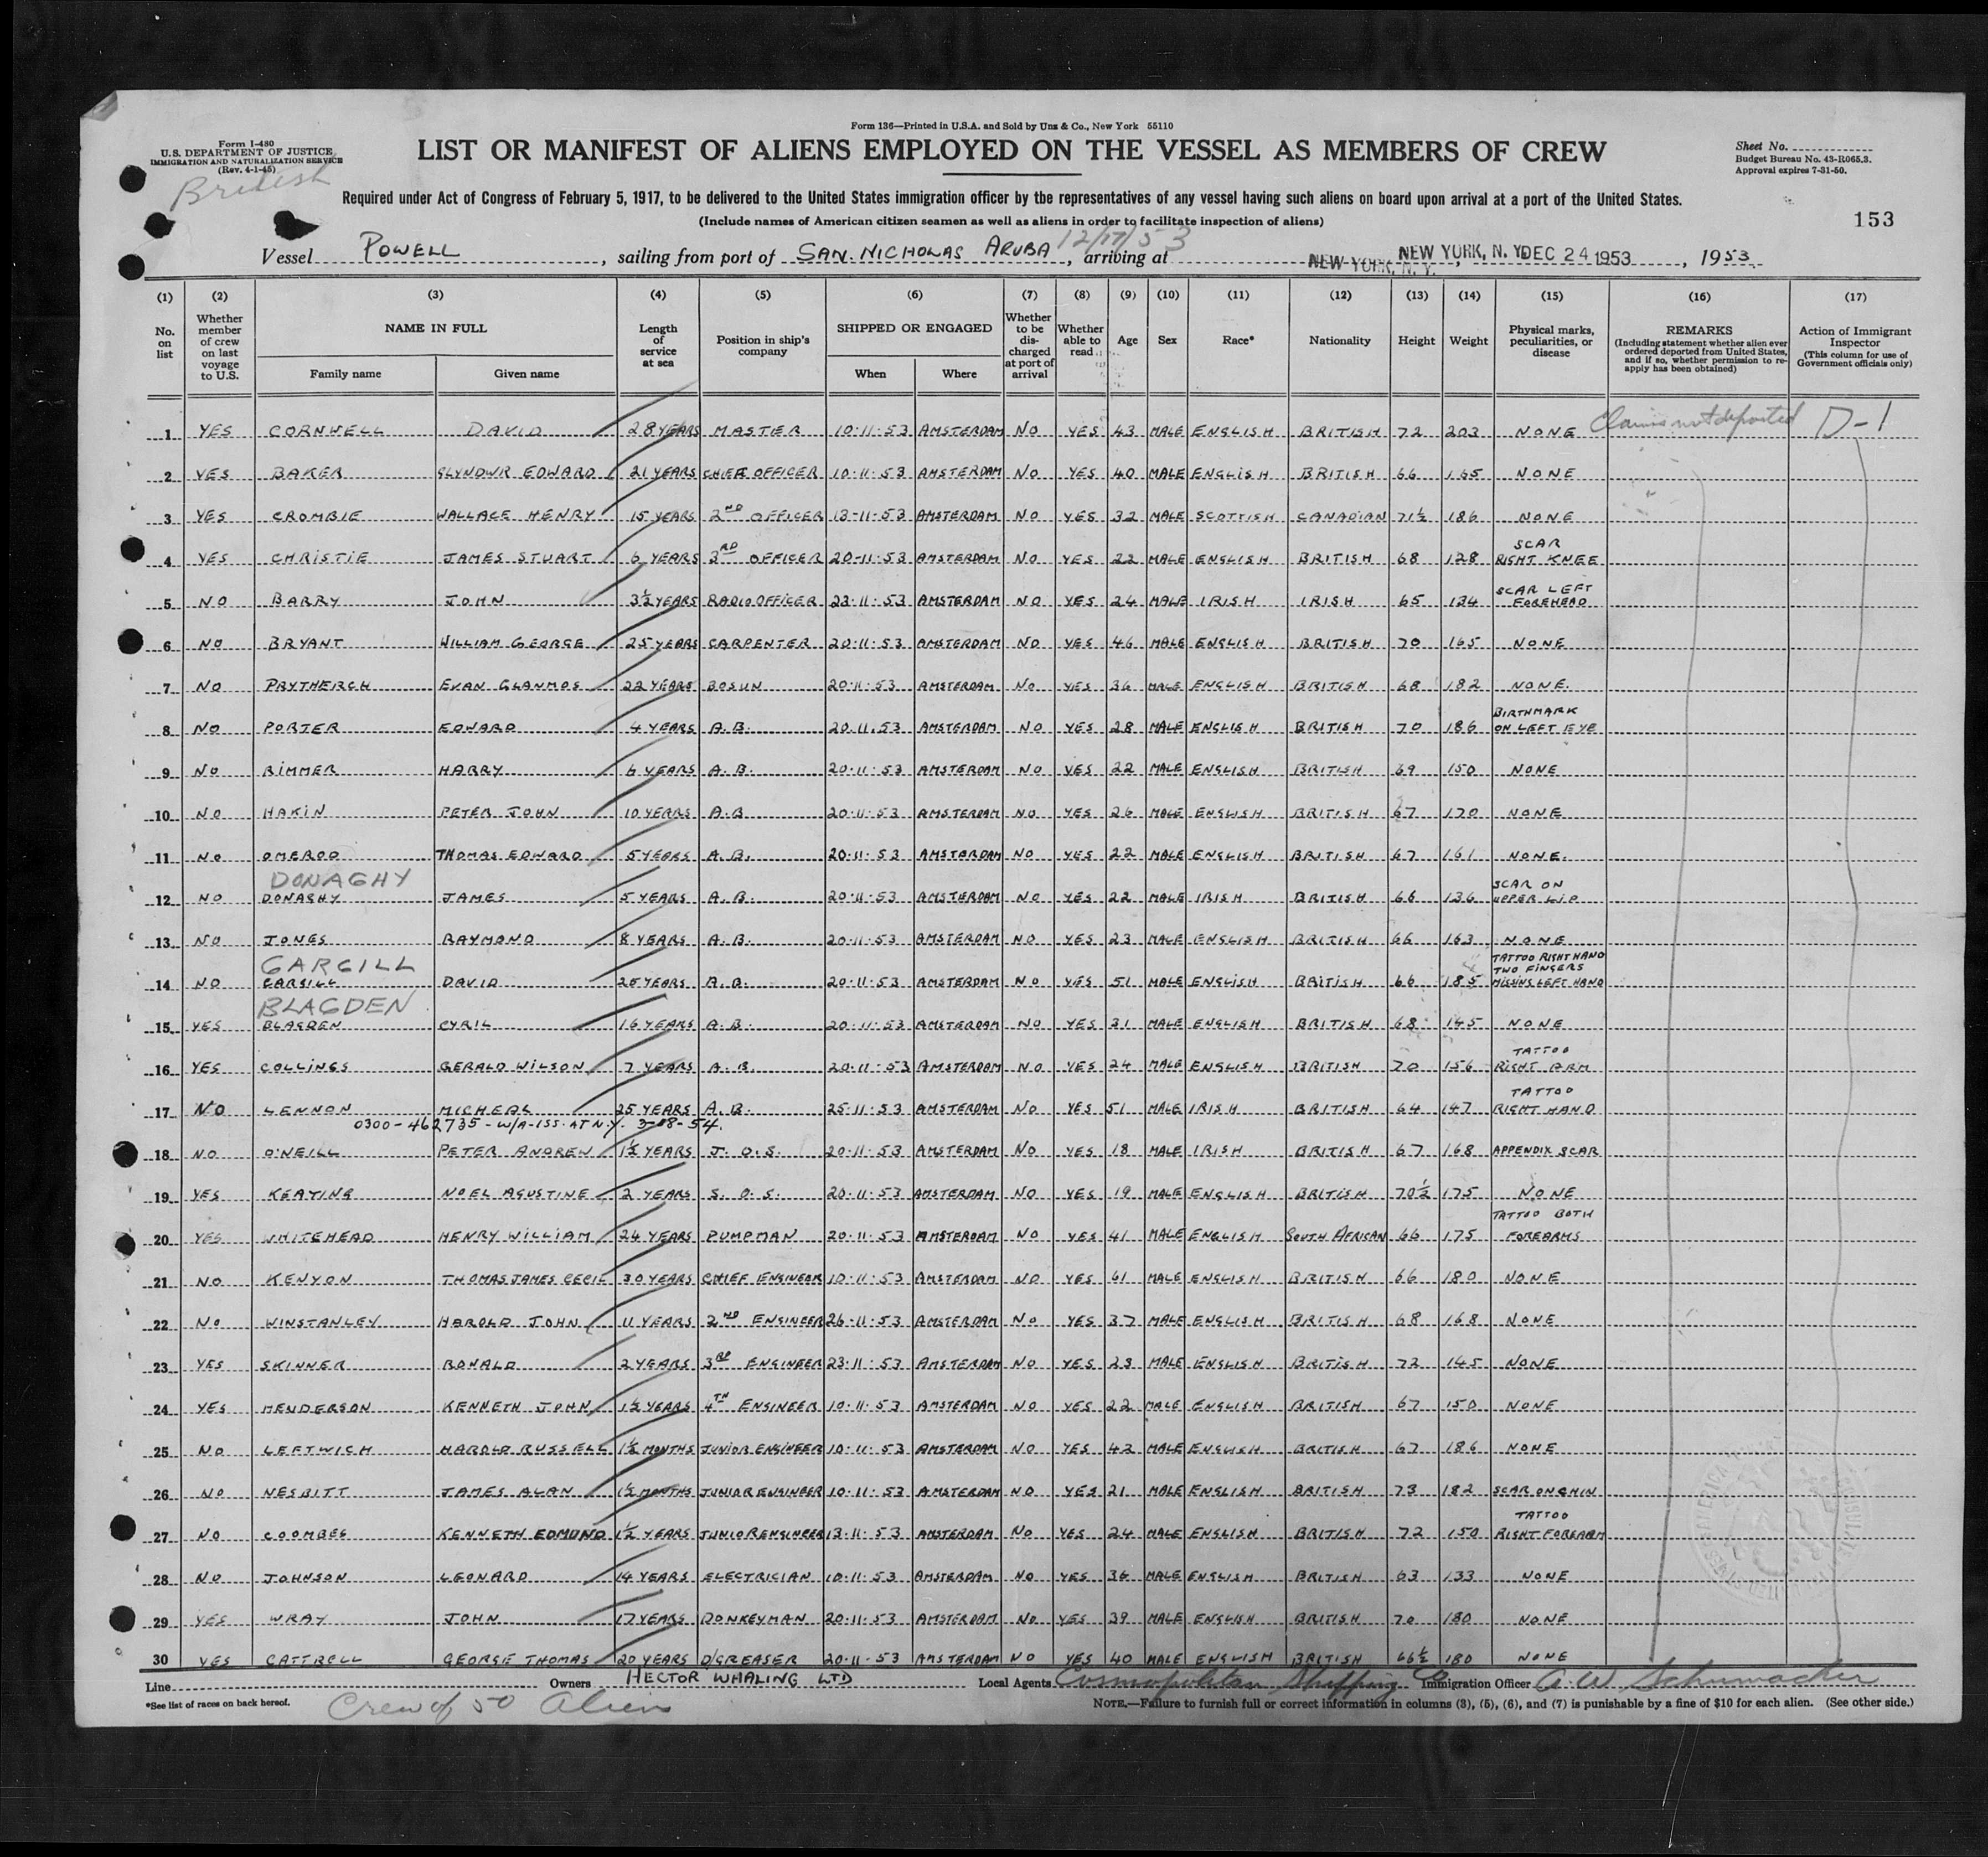 Form 136—Printed in U.S.A. and Sold by Unz & Co., New York 55110
Form I-480
U.S. DEPARTMENT OF JUSTICE
IMMIGRATION AND NATURALIZATION SERVICE
(Rev. 4-1-45)
British
LIST OR MANIFEST OF ALIENS EMPLOYED ON THE VESSEL AS MEMBERS OF CREW
Sheet No.
Budget Bureau No. 43-R065.3.
Approval expires 7-31-50.
Required under Act of Congress of February 5, 1917, to be delivered to the United States immigration officer by the representatives of any vessel having such aliens on board upon arrival at a port of the United States.
(Include names of American citizen seamen as well as aliens in order to facilitate inspection of aliens)
153
12/17/53
Vessel POWELL, sailing from port of SAN. NICHOLAS ARUBA, arriving at NEW YORK, N. Y. NEW YORK, N. Y. DEC 24 1953, 1953
(1) (2) (3) (4) (5) (6) (7) (8) (9) (10) (11) (12) (13) (14) (15) (16) (17)
No. on list
Whether member of crew on last voyage to U.S.
NAME IN FULL
Family name Given name
Length of service at sea
Position in ship's company
SHIPPED OR ENGAGED
When Where
Whether to be discharged at port of arrival
Whether able to read
Age
Sex
Race*
Nationality
Height
Weight
Physical marks, peculiarities, or disease
REMARKS
(Including statement whether alien ever ordered deported from United States, and if so, whether permission to reapply has been obtained)
Action of Immigrant Inspector
(This column for use of Government officials only)
1 YES CORNWELL DAVID 28 YEARS MASTER 10-11-53 AMSTERDAM NO YES 43 MALE ENGLISH BRITISH 72 203 NONE Claims not deported D-1
2 YES BAKER GLYNDWR EDWARD 21 YEARS CHIEF OFFICER 10-11-53 AMSTERDAM NO YES 40 MALE ENGLISH BRITISH 66 165 NONE
3 YES CROMBIE WALLACE HENRY 15 YEARS 2ND OFFICER 13-11-53 AMSTERDAM NO YES 32 MALE SCOTTISH CANADIAN 71½ 186 NONE
4 YES CHRISTIE JAMES STUART 6 YEARS 3RD OFFICER 20-11-53 AMSTERDAM NO YES 22 MALE ENGLISH BRITISH 68 128 SCAR RIGHT KNEE
5 NO BARRY JOHN 3½ YEARS RADIO OFFICER 23-11-53 AMSTERDAM NO YES 24 MALE IRISH IRISH 65 134 SCAR LEFT FOREHEAD
6 NO BRYANT WILLIAM GEORGE 25 YEARS CARPENTER 20-11-53 AMSTERDAM NO YES 46 MALE ENGLISH BRITISH 70 165 NONE
7 NO PRYTHERCH EVAN GLANMOS 22 YEARS BOSUN 20-11-53 AMSTERDAM NO YES 36 MALE ENGLISH BRITISH 68 182 NONE.
8 NO PORTER EDWARD 4 YEARS A.B. 20.11.53 AMSTERDAM NO YES 28 MALE ENGLISH BRITISH 70 186 BIRTHMARK ON LEFT EYE
9 NO RIMMER HARRY 6 YEARS A.B. 20-11-53 AMSTERDAM NO YES 22 MALE ENGLISH BRITISH 69 150 NONE
10 NO HAKIN PETER JOHN 10 YEARS A.B 20-11-53 AMSTERDAM NO YES 26 MALE ENGLISH BRITISH 67 170 NONE
11 NO OMEROD THOMAS EDWARD 5 YEARS A.B. 20-11-53 AMSTERDAM NO YES 22 MALE ENGLISH BRITISH 67 161 NONE.
DONAGHY
12 NO DONAGHY JAMES 5 YEARS A.B. 20-11-53 AMSTERDAM NO YES 22 MALE IRISH BRITISH 66 136 SCAR ON UPPER LIP
13 NO JONES RAYMOND 8 YEARS A.B. 20-11-53 AMSTERDAM NO YES 23 MALE ENGLISH BRITISH 66 163 NONE
GARGILL
14 NO CARGILL DAVID 25 YEARS A.B. 20-11-53 AMSTERDAM NO YES 51 MALE ENGLISH BRITISH 66 185 TATTOO RIGHT HAND TWO FINGERS MISSING LEFT HAND
BLAGDEN
15 YES BLAGDEN CYRIL 16 YEARS A.B. 20-11-53 AMSTERDAM NO YES 31 MALE ENGLISH BRITISH 68 145 NONE
16 YES COLLINGS GERALD WILSON 7 YEARS A.B. 20-11-53 AMSTERDAM NO YES 24 MALE ENGLISH BRITISH 70 156 TATTOO RIGHT ARM
17 NO LENNON MICHEAL 25 YEARS A.B. 25-11-53 AMSTERDAM NO YES 51 MALE IRISH BRITISH 64 147 TATTOO RIGHT HAND
0300-462735-W/A-ISS. AT N.Y. 3-18-54.
18 NO O'NEILL PETER ANDREW 1½ YEARS J.O.S. 20-11-53 AMSTERDAM NO YES 18 MALE IRISH BRITISH 67 168 APPENDIX SCAR
19 YES KEATING NOEL AGUSTINE 2 YEARS S.O.S. 20-11-53 AMSTERDAM NO YES 19 MALE ENGLISH BRITISH 70½ 175 NONE
20 YES WHITEHEAD HENRY WILLIAM 24 YEARS PUMPMAN 20-11-53 AMSTERDAM NO YES 41 MALE ENGLISH SOUTH AFRICAN 66 175 TATTOO BOTH FOREARMS
21 NO KENYON THOMAS JAMES CECIL 30 YEARS CHIEF ENGINEER 10-11-53 AMSTERDAM NO YES 61 MALE ENGLISH BRITISH 66 180 NONE
22 NO WINSTANLEY HAROLD JOHN 11 YEARS 2ND ENGINEER 26-11-53 AMSTERDAM NO YES 37 MALE ENGLISH BRITISH 68 168 NONE
23 YES SKINNER RONALD 2 YEARS 3RD ENGINEER 23-11-53 AMSTERDAM NO YES 23 MALE ENGLISH BRITISH 72 145 NONE
24 YES HENDERSON KENNETH JOHN 1½ YEARS 4TH ENGINEER 10-11-53 AMSTERDAM NO YES 22 MALE ENGLISH BRITISH 67 150 NONE
25 NO LEFTWICH HAROLD RUSSELL 1½ MONTHS JUNIOR ENGINEER 10-11-53 AMSTERDAM NO YES 42 MALE ENGLISH BRITISH 67 186 NONE
26 NO NESBITT JAMES ALAN 1½ MONTHS JUNIOR ENGINEER 10-11-53 AMSTERDAM NO YES 21 MALE ENGLISH BRITISH 73 182 SCAR ON CHIN
27 NO COOMBES KENNETH EDMUND 1½ YEARS JUNIOR ENGINEER 13-11-53 AMSTERDAM NO YES 24 MALE ENGLISH BRITISH 72 150 TATTOO RIGHT FOREARM
28 NO JOHNSON LEONARD 14 YEARS ELECTRICIAN 10-11-53 AMSTERDAM NO YES 36 MALE ENGLISH BRITISH 63 133 NONE
29 YES WRAY JOHN 17 YEARS DONKEYMAN 20-11-53 AMSTERDAM NO YES 39 MALE ENGLISH BRITISH 70 180 NONE
30 YES CATTRELL GEORGE THOMAS 20 YEARS D/GREASER 20-11-53 AMSTERDAM NO YES 40 MALE ENGLISH BRITISH 66½ 180 NONE
Line Owners HECTOR WHALING LTD Local Agents Cosmopolitan Shipping Co Immigration Officer A. W. Schumacher
*See list of races on back hereof.
Crew of 50 Aliens
NOTE.—Failure to furnish full or correct information in columns (3), (5), (6), and (7) is punishable by a fine of $10 for each alien. (See other side.)